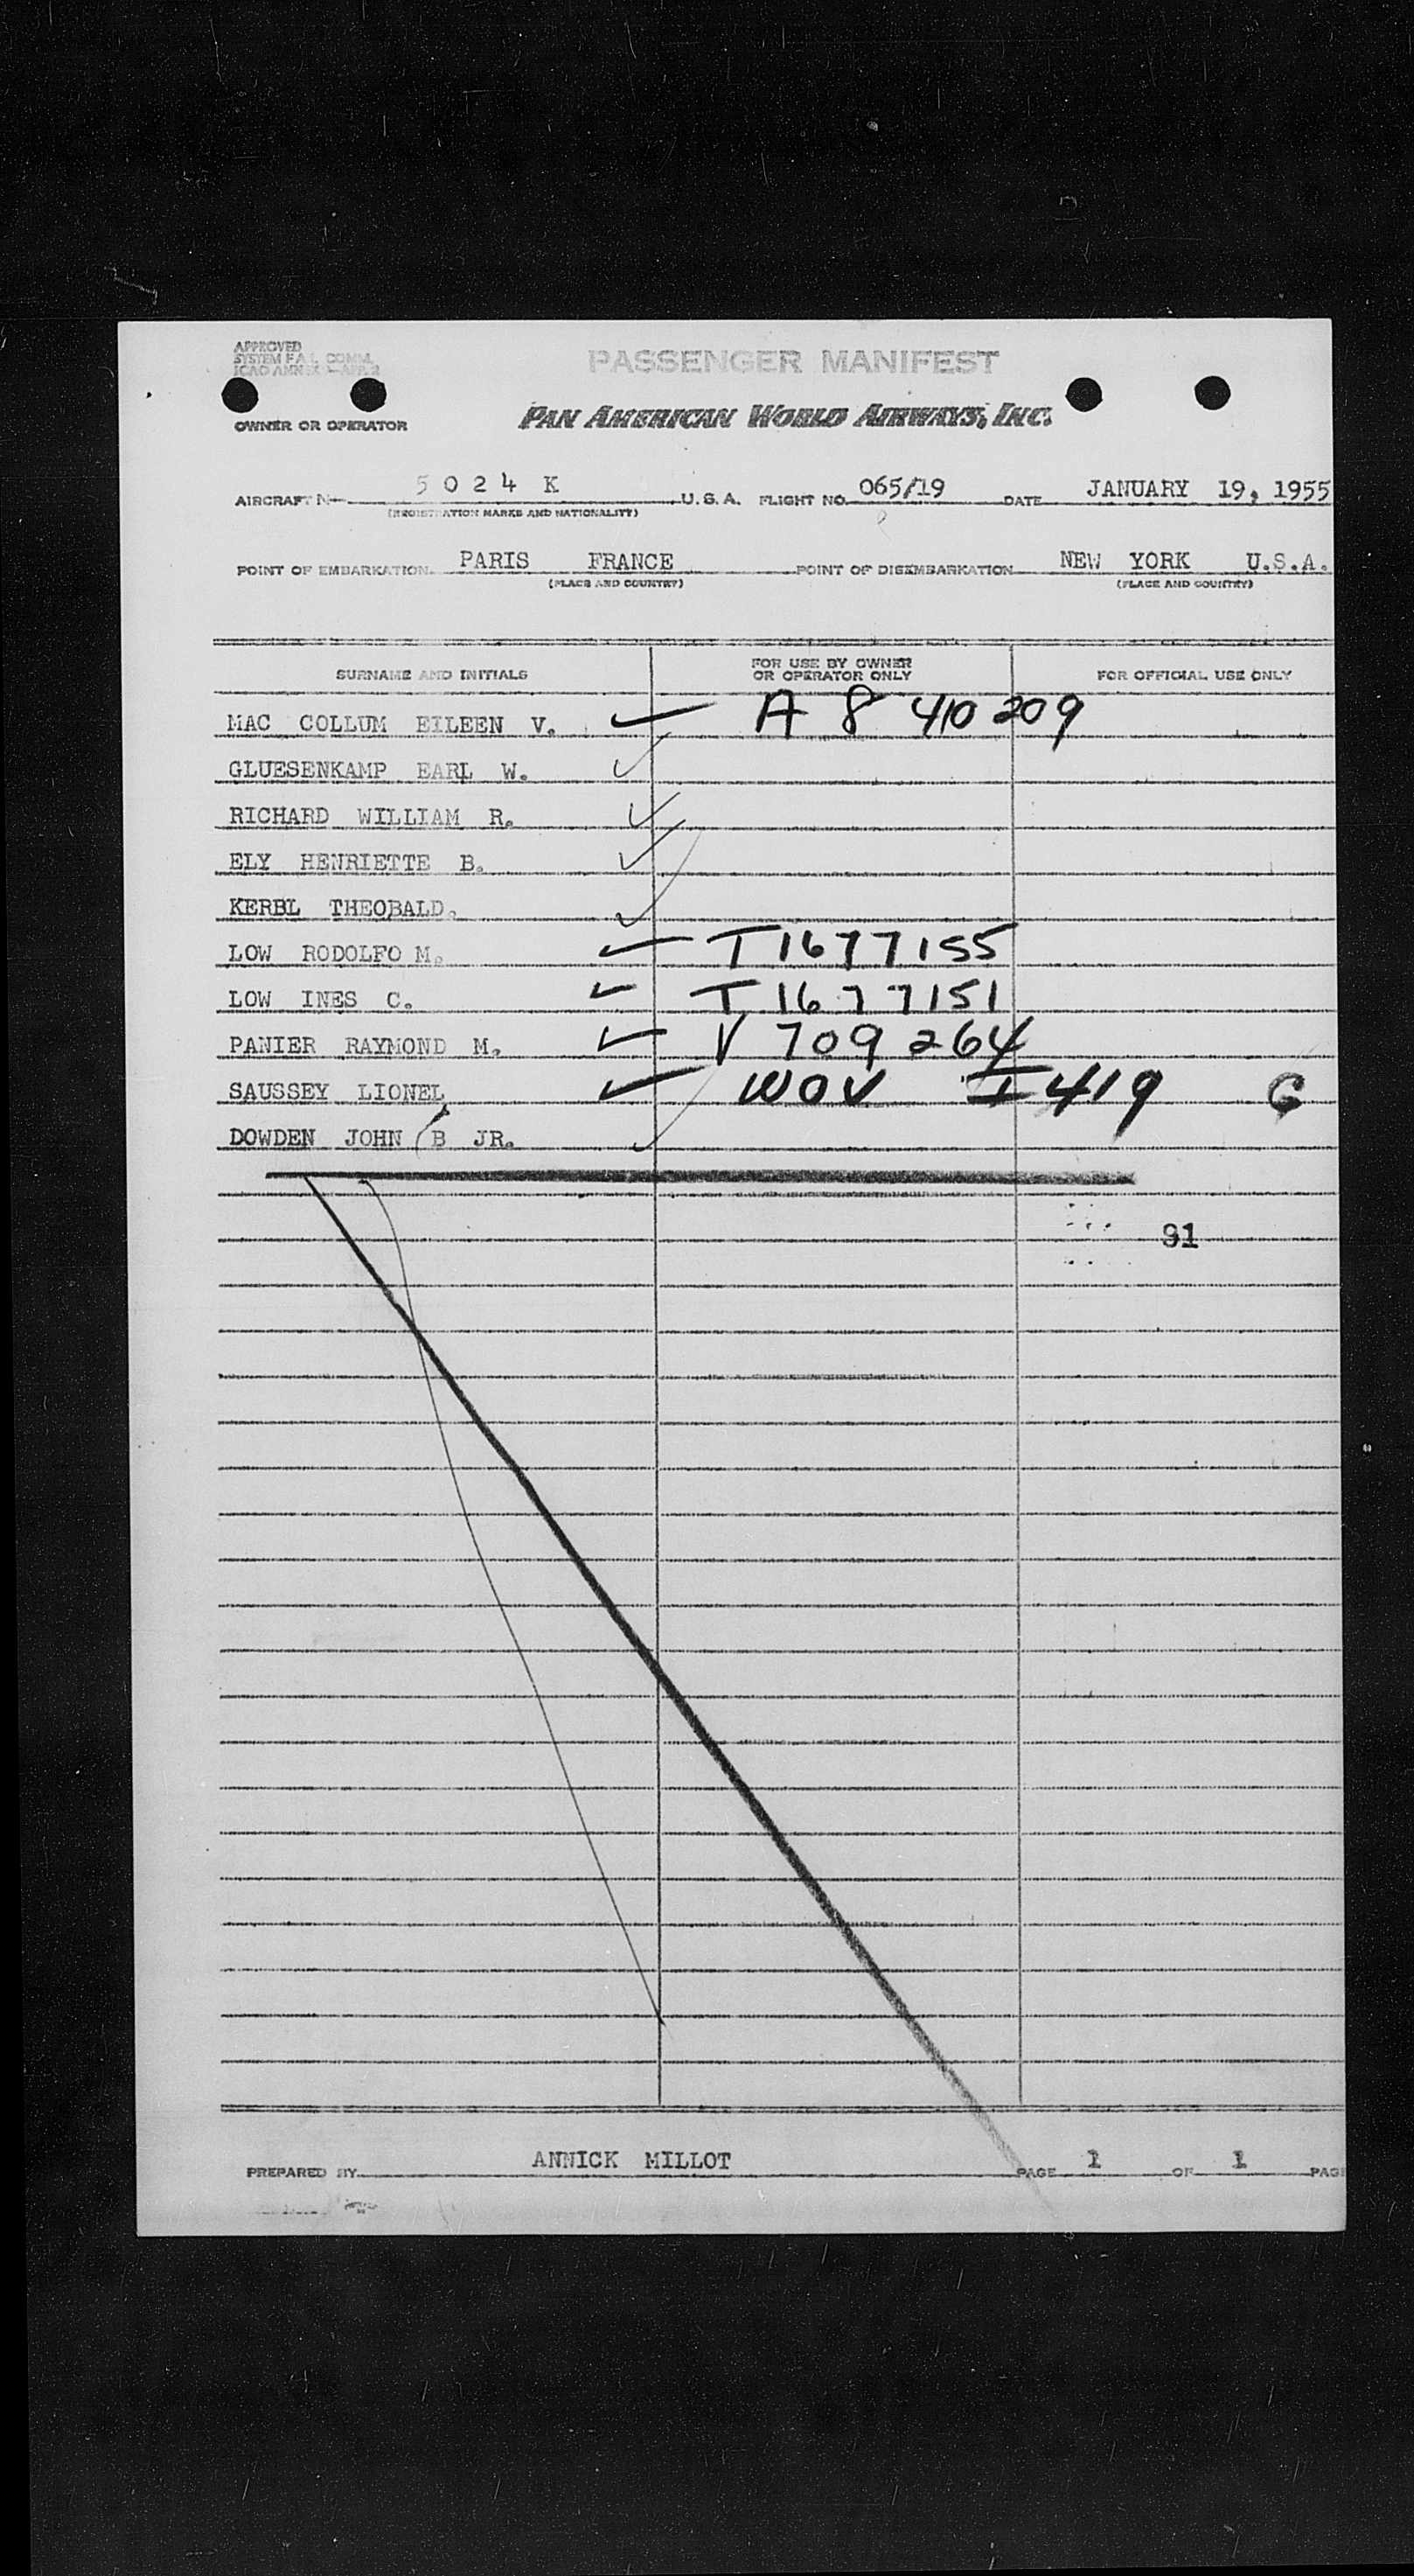 APPROVED
SYSTEM F.A.L. COMM.
ICAO ANNEX
PASSENGER MANIFEST
OWNER OR OPERATOR
PAN AMERICAN WORLD AIRWAYS, INC.
AIRCRAFT N— 5 0 2 4 K U.S.A. FLIGHT NO. 065/19 DATE JANUARY 19, 1955
(REGISTRATION MARKS AND NATIONALITY)
POINT OF EMBARKATION PARIS FRANCE POINT OF DISEMBARKATION NEW YORK U.S.A.
(PLACE AND COUNTRY) (PLACE AND COUNTRY)
SURNAME AND INITIALS FOR USE BY OWNER OR OPERATOR ONLY FOR OFFICIAL USE ONLY
MAC COLLUM EILEEN V. ✓ A 8 410 209
GLUESENKAMP EARL W. ✓
RICHARD WILLIAM R. ✓
ELY HENRIETTE B. ✓
KERBL THEOBALD. ✓
LOW RODOLFO M. ✓ T 1677155
LOW INES C. ✓ T 1677151
PANIER RAYMOND M. ✓ V 709 264
SAUSSEY LIONEL ✓ WOV I 419 G
DOWDEN JOHN B JR. ✓
91
PREPARED BY ANNICK MILLOT PAGE 1 OF 1 PAG